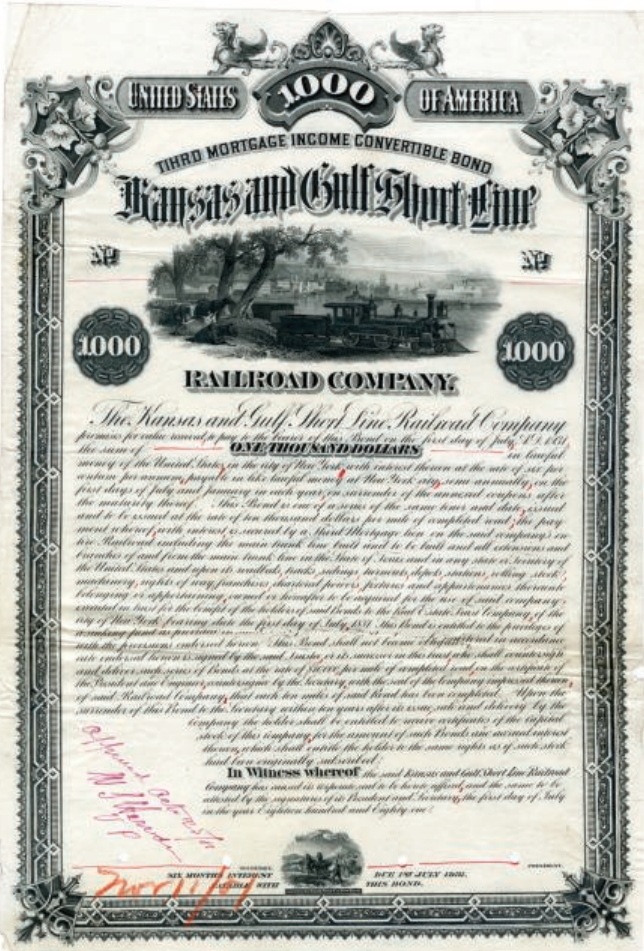 UNITED STATES 1.000 OF AMERICA
TIHRD MORTGAGE INCOME CONVERTIBLE BOND
Kansas and Gulf Short Line
No No
1.000 1.000
RAILROAD COMPANY.
The Kansas and Gulf Short Line Railroad Company
promises for value received, to pay to the bearer of this Bond on the first day of July, A.D.
the sum of ONE THOUSAND DOLLARS in lawful
money of the United States in the city of New York, with interest thereon at the rate of six per
centum per annum, payable in like lawful money at New York city, semi annually, on the
first days of July and January in each year, on surrender of the annexed coupons after
the maturity thereof. This Bond is one of a series of the same tenor and date, issued
and to be issued at the rate of ten thousand dollars per mile of completed road, the pay
ment whereof, with interest, is secured by a Third Mortgage lien on the said company's en
tire Railroad including its main trunk line built and to be built and all extensions and
branches of and from the main trunk line in the State of Texas and in any state or territory of
the United States and upon its roadbeds, tracks, sidings, turnouts, depots, stations, rolling stock,
machinery, rights of way, franchises, chartered powers, fixtures and appurtenances thereunto
belonging or appertaining, owned or hereafter to be acquired for the use of said company,
executed in trust for the benefit of the holders of said Bonds to the Real Estate Trust Company, of the
city of New York, bearing date the first day of July, 1881. This Bond is entitled to the privileges of
a sinking fund as provided in
with the provisions endorsed hereon. This Bond shall not become in accordance
endorsed hereon is signed by the said Trustee or its successor in this trust, who shall countersign
and deliver such series of Bonds at the rate of per mile of completed road on the certificate of
the President and Engineer, countersigned by the Secretary, with the seal of the Company impressed thereon,
of said Railroad Company, that each ten miles of said Road has been completed. Upon the
surrender of this Bond to the Secretary within ten years after its issue, sale and delivery by the
Company the holder shall be entitled to receive certificates of the Capital
stock of this company, for the amount of such Bonds and accrued interest
thereon, which shall entitle the holder to the same rights as if such stock
had been originally subscribed.
In Witness whereof the said Kansas and Gulf Short Line Railroad
Company has caused its corporate seal to be hereto affixed, and the same to be
attested by the signatures of its President and Secretary, the first day of July
in the year Eighteen hundred and Eighty one.
SECRETARY. PRESIDENT.
SIX MONTHS INTEREST DUE 1ST JULY 1931.
PAYABLE WITH THIS BOND.